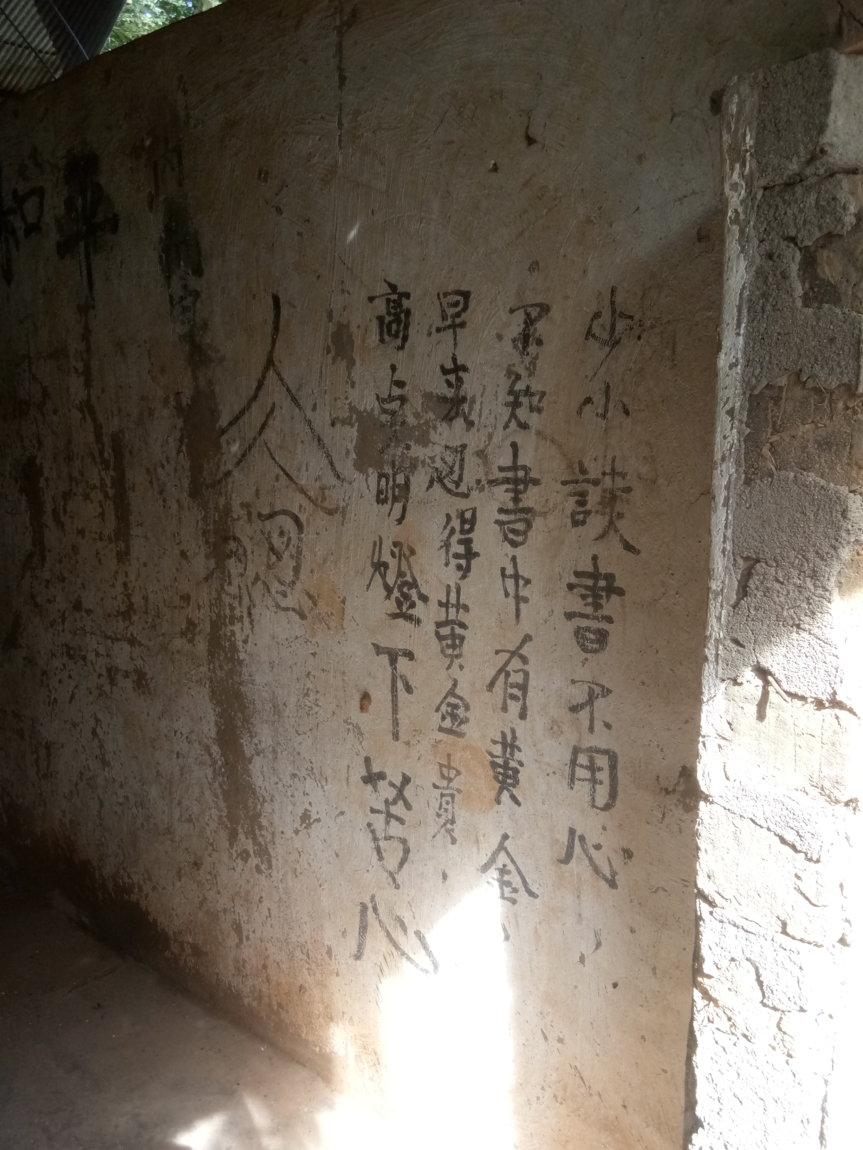 少小读書不用心，
不知書中有黄金，
早来忍得黄金貴，
高点明燈下苦心
人
忍
平
和